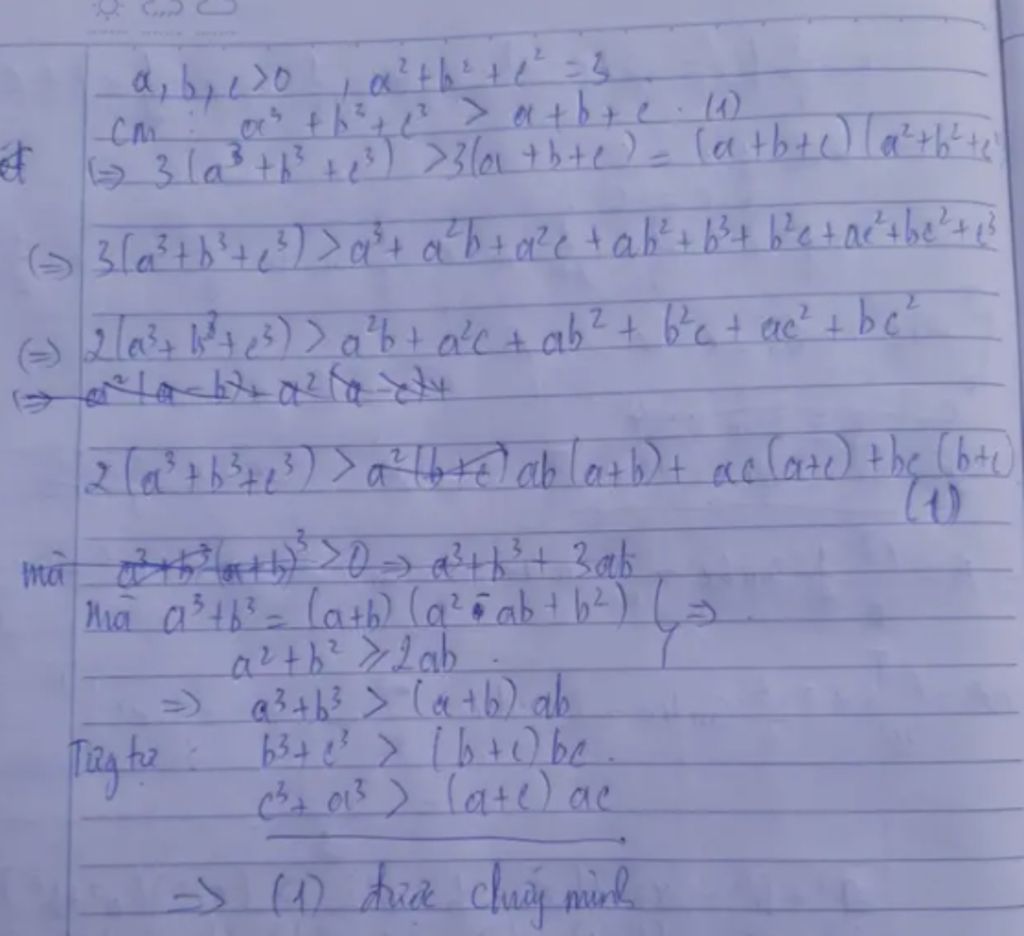 a, b, c >0 , a² + b² + c² = 3
cm : a³ + b³ + c³ > a + b + c . (1)
(=> 3(a³ + b³ + c³) >3(a + b + c) = (a + b + c) (a² + b² + c
(=) 3(a³+b³+c³) > a³+ a²b + a²c + ab² + b³ + b²c + ac² + bc² + c³
(=) 2(a³ + b³ + c³) > a²b + a²c + ab² + b²c + ac² + bc²
(=> a²(a - b) + a²(a - c) +
2(a³ + b³ + c³) > a²(b+c) ab(a+b) + ac(a+c) + bc(b+c)
(1)
mà a³+b³ (a+b)³ >0 => a³ + b³ + 3ab
Mà a³ + b³ = (a+b) (a² - ab + b²) } =>
a² + b² ⩾ 2ab .
=> a³ + b³ > (a+b) ab
Tương tự : b³ + c³ > (b + c) bc .
c³ + a³ > (a+c) ac
=> (1) được chứng minh